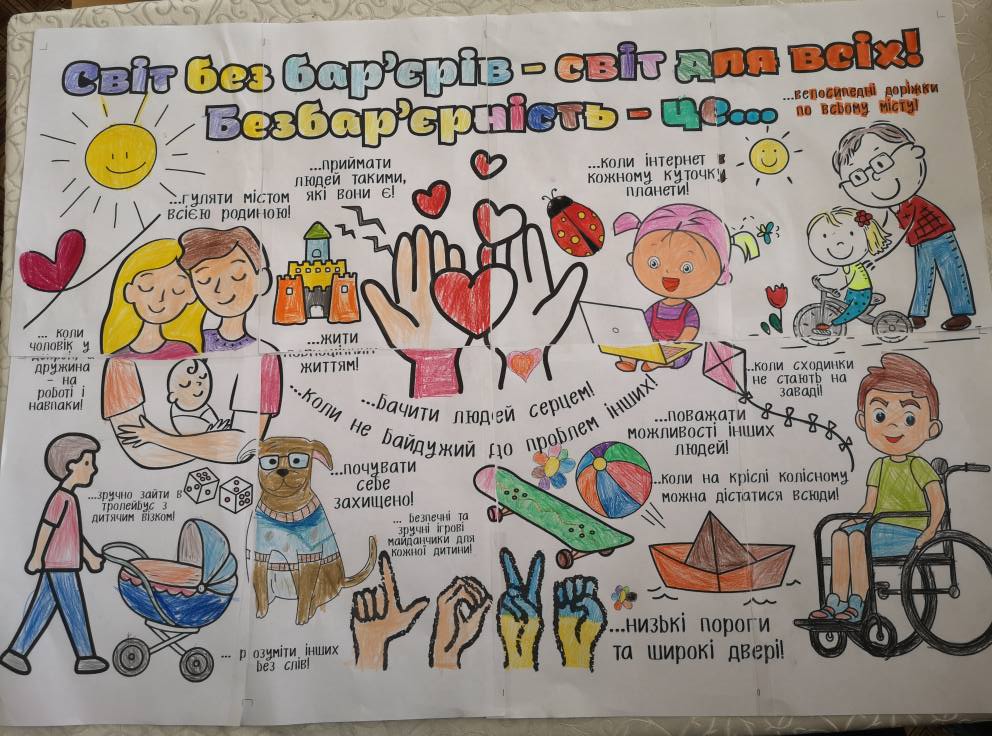 Світ без бар’єрів - світ для всіх!
Безбар’єрність - це...
...велосипедні доріжки
по всьому місту!
...приймати
людей такими,
які вони є!
...гуляти містом
всією родиною!
...коли інтернет в
кожному куточку
планети!
... коли
чоловік у
дружина
- на
роботі і
навпаки!
...жити
життям!
...бачити людей серцем!
...коли не байдужий до проблем інших!
...коли сходинки
не стають на
заваді!
...поважати
можливості інших
людей!
...коли на кріслі колісному
можна дістатися всюди!
...почувати
себе
захищено!
...зручно зайти в
тролейбус з
дитячим візком!
... безпечні та
зручні ігрові
майданчики для
кожної дитини!
... розуміти інших
без слів!
...низькі пороги
та широкі двері!